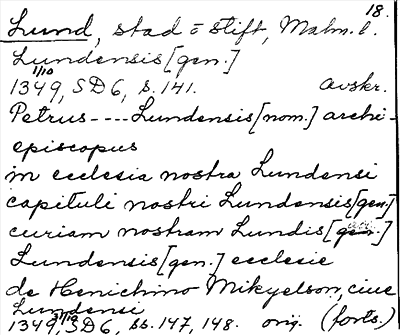 18.
Lund, stad o stift, Malm. l.
Lundensis [gen.]
1349 1/10, SD 6, s. 141. Avskr.
Petrus ---- Lundensis [nom.] archi-
episcopus
in ecclesia nostra Lundensi
capituli nostri Lundensis [gen.]
curiam nostram Lundis [gen.]
Lundensis [gen.] ecclesie
de Henichino Mikyelson, ciue
Lundensi
1349, SD 6, ss. 147, 148. orig. (forts.)